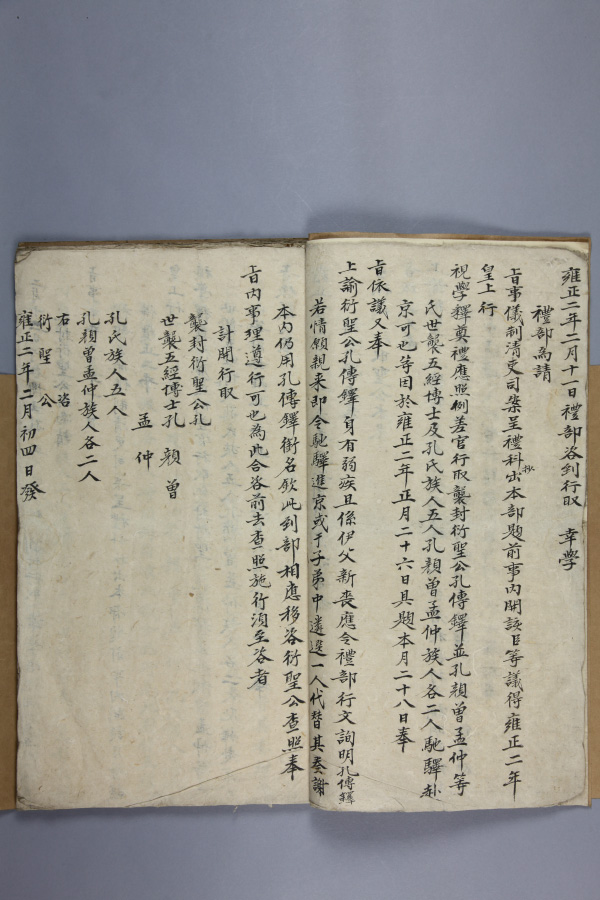 雍正二年二月十一日禮部咨到行取　幸學
禮部為請
旨事儀制清吏司案呈禮科抄出本部題前事內開該臣等議得雍正二年
皇上行
視學釋奠禮應照例差官行取襲封衍聖公孔傳鐸並孔顏曾孟仲等
氏世襲五經博士及孔氏族人五人孔顏曾孟仲族人各二人馳驛赴
京可也等因於雍正二年正月二十六日具題本月二十八日奉
旨依議又奉
上諭衍聖公孔傳鐸身有弱疾且係伊父新喪應令禮部行文詢明孔傳鐸
若情願親来即令馳驛進京或于子弟中遴選一人代替其奏謝
本內仍用孔傳鐸銜名欽此到部相應移咨衍聖公查照奉
旨內事理遵行可也為此合咨前去查照施行須至咨者
計開行取
襲封衍聖公孔
世襲五經博士孔　顏　曾
孟　仲
孔氏族人五人
孔顏曾孟仲族人各二人
右　咨
衍聖公
雍正二年二月初四日發